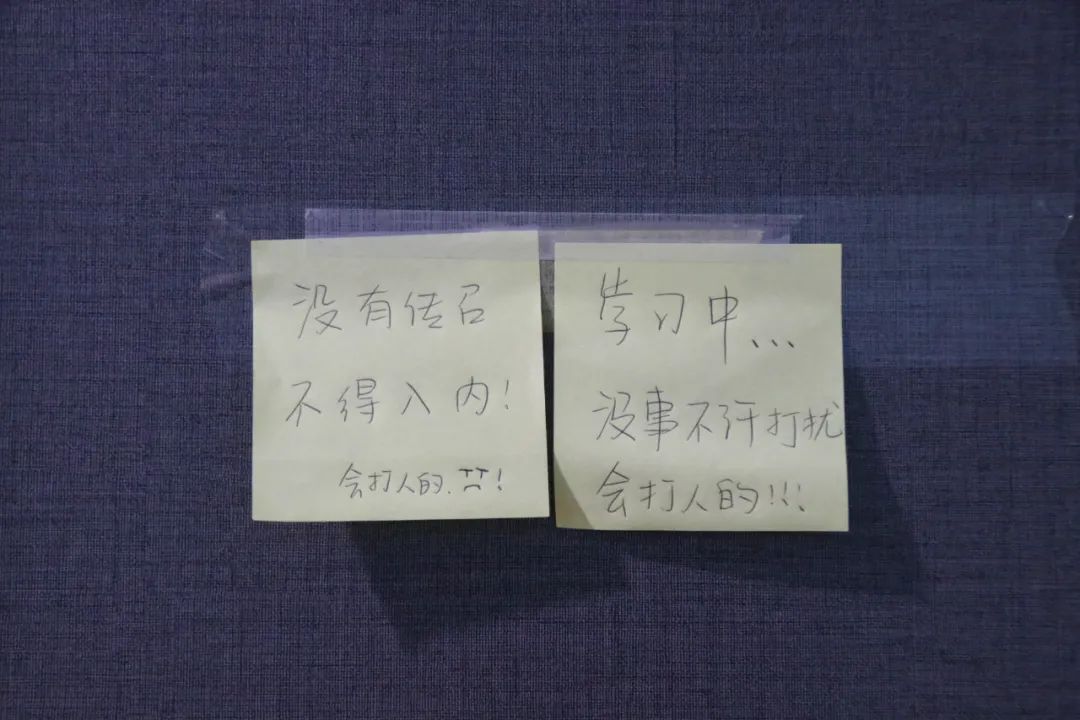 没有传召
不得入内!
会打人的.
学习中...
没事不许打扰
会打人的!!!